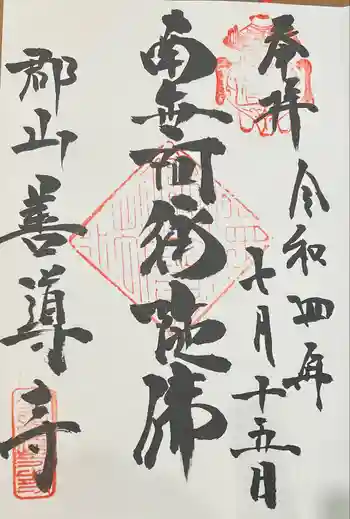 奉拝
令和四年
七月十五日
南無阿弥陀佛
郡山善導寺